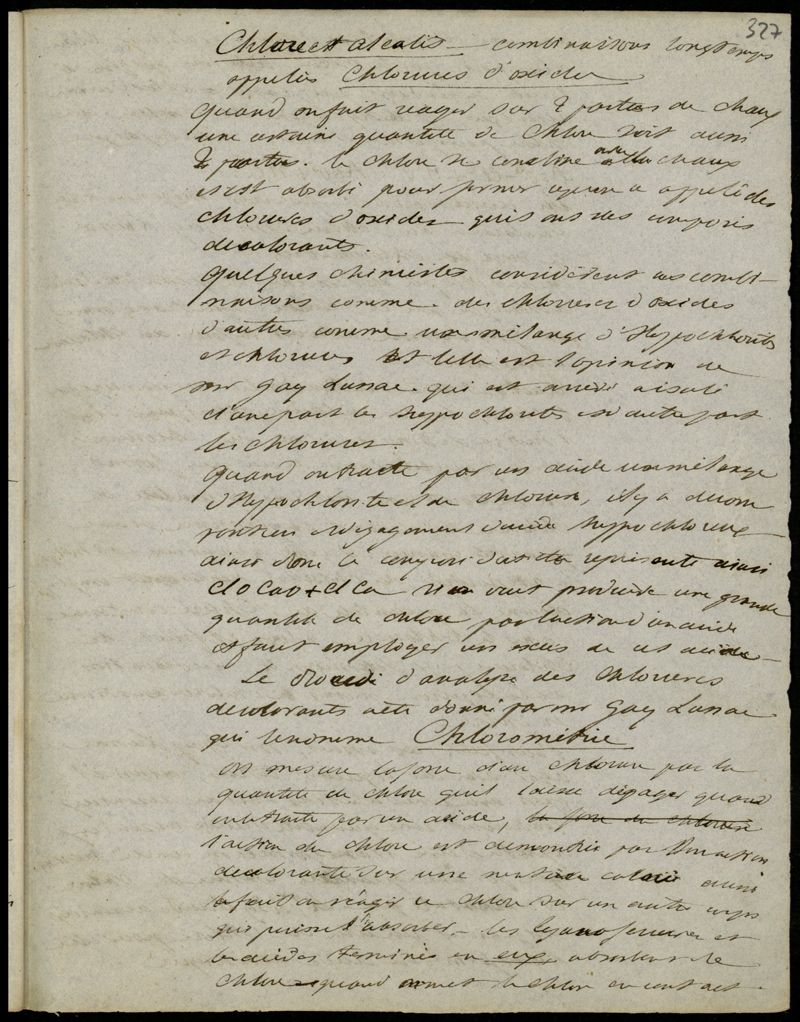 327
Chlore et alcalis – combinaisons longtemps
appelées Chlorures d'oxides
quand on fait réagir sur 2 parties de chaux
une certaine quantité de Chlore soit aussi
2 parties. le chlore se combine avec la chaux
et est absorbé pour former ce qu'on a appelé des
chlorures d'oxides qui sont des composés
decolorants.
quelques chimistes considèrent ces combi-
naisons comme des chlorures d'oxides
d'autres comme un mélange d'Hypochlorites
et chlorures et telle est l'opinion de
mr Gay Lussac qui est arrivé à isolé
d'une part les hypochlorites et d'autre part
les chlorures.
quand on traite par un acide un mélange
d'Hypochlorite et de chlorure, il y a
et dégagement d'acide hypochloreux
ainsi donc le composé représenté ainsi
ClO CaO + Cl Ca veut produire une grande
quantité de chlore par l'action d'un acide
il faut employer un excès de cet acide –
Le procédé d'analyse des chlorures
decolorants a été donné par mr Gay Lussac
qui l'a nommé Chlorométrie
on mesure la force d'un chlorure par la
quantité de chlore qu'il laisse dégager quand
on le traite par un acide, la force du chlorure
l'action du chlore est démontrée par son action
decolorante sur une aussi
il faut réagir ce chlore sur un autre corps
qui puisse l'absorber – les cyanoferrures et
les acides terminés en eux absorbent le
chlore – quand on met le chlore en contact